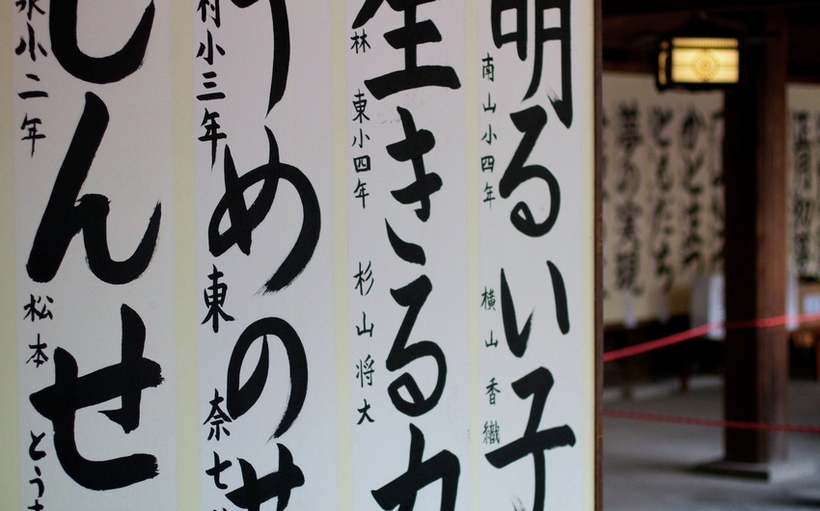 明るい子
南山小四年 横山 香織
生きる力
林 東小四年 杉山将大
うめのせ
村小三年 東 奈七
しんせ
泉小二年 松本 とう
夢の実現
ともだち
かどまつ